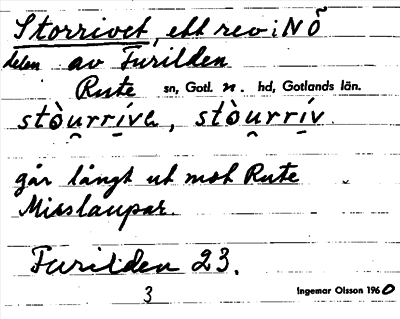 Storrivet, ett rev i NÖ
delen av Furilden
Rute sn, Gotl. n. hd, Gotlands län.
stòu̯rrí̱va, stòu̯rrí̱v
går långt ut mot Rute
Misslaupar.
Furilden 23.
3 Ingemar Olsson 1960